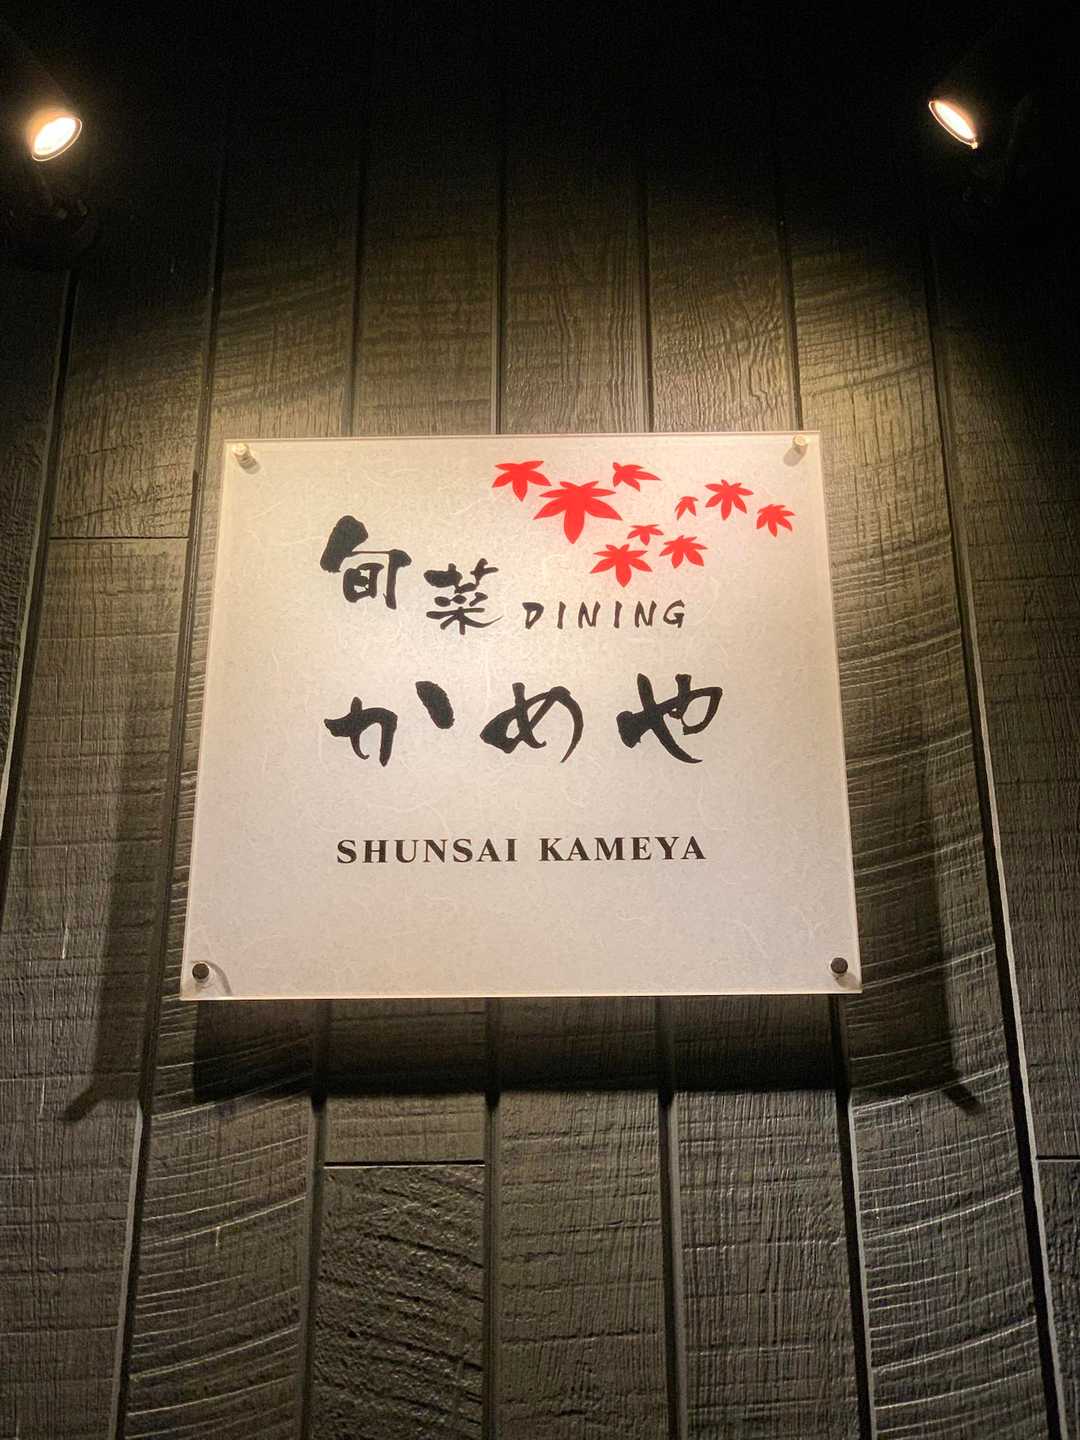 旬菜 DINING
かめや
SHUNSAI KAMEYA